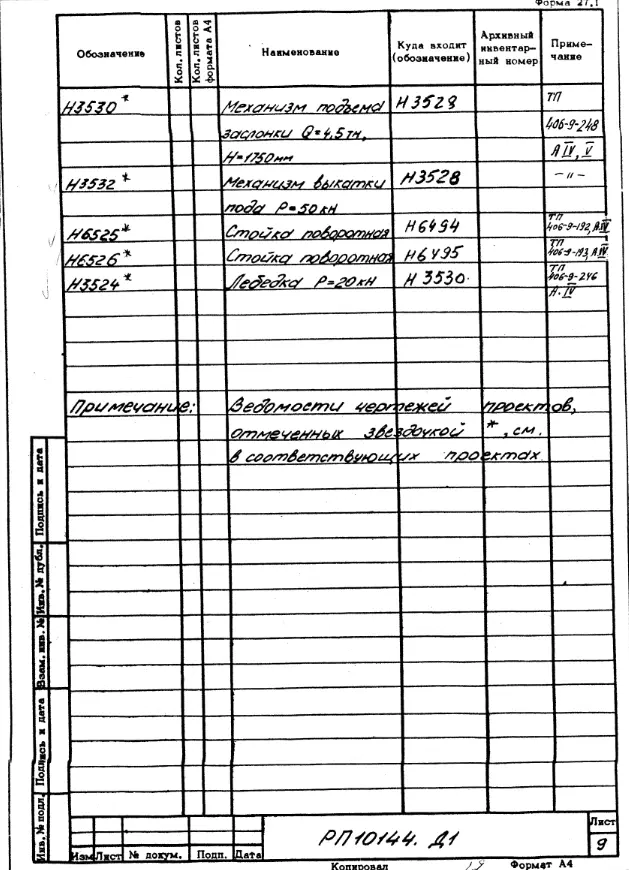 Форма 27.1
Обозначение Кол. листов Кол. листов формата А4 Наименование Куда входит (обозначение) Архивный инвентарный номер Примечание
Н3530* Механизм подъема Н3528 ТП
заслонки Q=4,5тн, 406-9-248
Н=1750мм А IV, V
Н3532* Механизм выкатки Н3528 -"-
пода Р=50кН
Н6525* Стойка поворотная Н6494 ТП 406-9-192, А IV
Н6526* Стойка поворотная Н6495 ТП 406-9-193, А IV
Н3524* Лебедка Р=20кН Н3530. ТП 406-9-246 А. IV
Примечание: Ведомости чертежей проектов,
отмеченных звездочкой *, см.
в соответствующих проектах
Подпись и дата
Инв. № дубл.
Взам. инв. №
Подпись и дата
Инв. № подл.
Изм Лист № докум. Подп. Дата
РП10144. Д1
Лист
9
Копировал
Формат А4